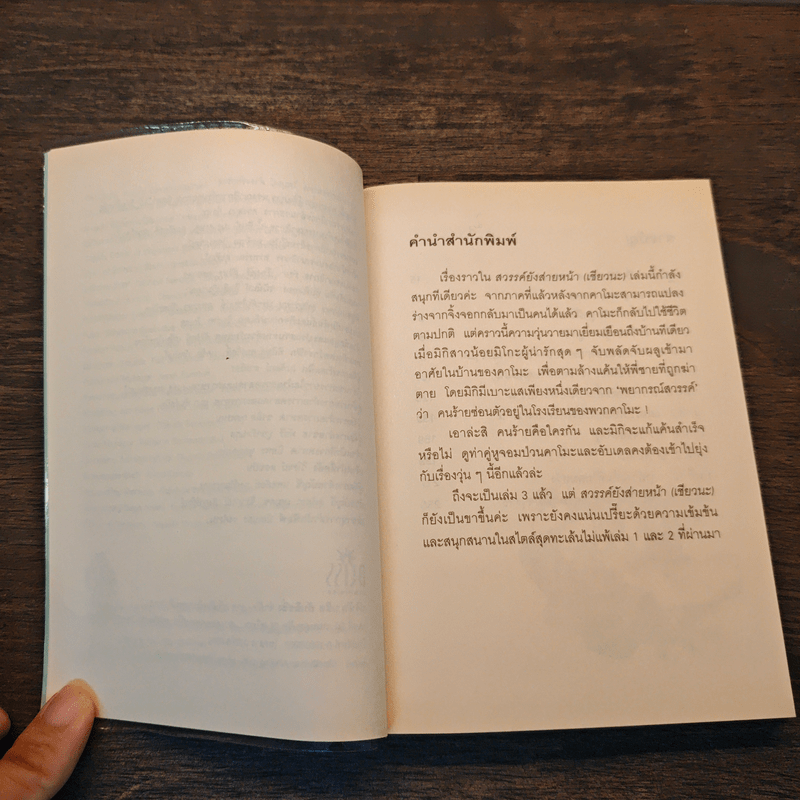 คำนำสำนักพิมพ์
เรื่องราวใน สวรรค์ยังส่ายหน้า (เชียวนะ) เล่มนี้กำลัง
สนุกทีเดียวค่ะ จากภาคที่แล้วหลังจากคาโมะสามารถแปลง
ร่างจากจิ้งจอกกลับมาเป็นคนได้แล้ว คาโมะก็กลับไปใช้ชีวิต
ตามปกติ แต่คราวนี้ความวุ่นวายมาเยี่ยมเยือนถึงบ้านทีเดียว
เมื่อมิกิสาวน้อยมิโกะผู้น่ารักสุด ๆ จับพลัดจับผลูเข้ามา
อาศัยในบ้านของคาโมะ เพื่อตามล้างแค้นให้พี่ชายที่ถูกฆ่า
ตาย โดยมิกิมีเบาะแสเพียงหนึ่งเดียวจาก 'พยากรณ์สวรรค์'
ว่า คนร้ายซ่อนตัวอยู่ในโรงเรียนของพวกคาโมะ !
เอาล่ะสิ คนร้ายคือใครกัน และมิกิจะแก้แค้นสำเร็จ
หรือไม่ ดูท่าคู่หูจอมป่วนคาโมะและอับเดลคงต้องเข้าไปยุ่ง
กับเรื่องวุ่น ๆ นี้อีกแล้วล่ะ
ถึงจะเป็นเล่ม 3 แล้ว แต่ สวรรค์ยังส่ายหน้า (เชียวนะ)
ก็ยังเป็นขาขึ้นค่ะ เพราะยังคงแน่นเปรี๊ยะด้วยความเข้มข้น
และสนุกสนานในสไตล์สุดทะเล้นไม่แพ้เล่ม 1 และ 2 ที่ผ่านมา